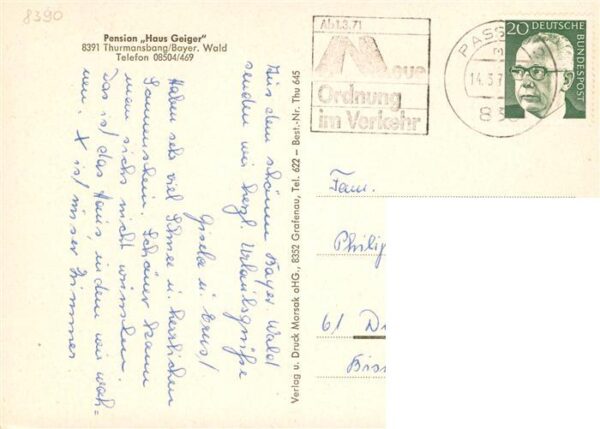 8390
Pension „Haus Geiger"
8391 Thurmansbang/Bayer. Wald
Telefon 08504/469
Aus dem schönen Bayer Wald
senden wir herzl. Urlaubsgrüße
Gisela u. Ernst
Haben sehr viel Schnee u. herrlichen
Sonnenschein. Schöner kann
man sichs nicht wünschen.
Das ist das Haus, in dem wir woh=
nen. X ist unser Zimmer
Verlag u. Druck Morsak oHG., 8352 Grafenau, Tel. 622 – Best.-Nr. Thu 645
Ab 1.3.71
Neue
Ordnung
im Verkehr
PASS
14.3.7
83
20 DEUTSCHE
BUNDESPOST
Fam.
Philip
61 D
Biss